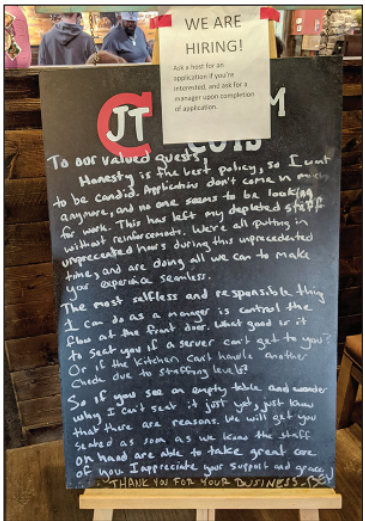 WE ARE
HIRING!
Ask a host for an
application if you're
interested, and ask for a
manager upon completion
of application.
JT
M
CUTS
To our valued guests,
Honesty is the best policy, so I want
to be candid. Applications don't come in much
anymore, and no one seems to be looking
for work. This has left my depleted staff
without reinforcements. We're all putting in
unprecented hours during this unprecedented
time, and are doing all we can to make
your experience seamless.
The most selfless and responsible thing
I can do as a manager is control the
flow at the front door. What good is it
to seat you if a server can't get to you?
Or if the kitchen can't handle another
check due to staffing levels?
So if you see an empty table and wonder
why I can't seat it just yet, just know
that there are reasons. We will get you
seated as soon as we know the staff
on hand are able to take great care
of you. I appreciate your support and grace.
THANK YOU FOR YOUR BUSINESS -BEV